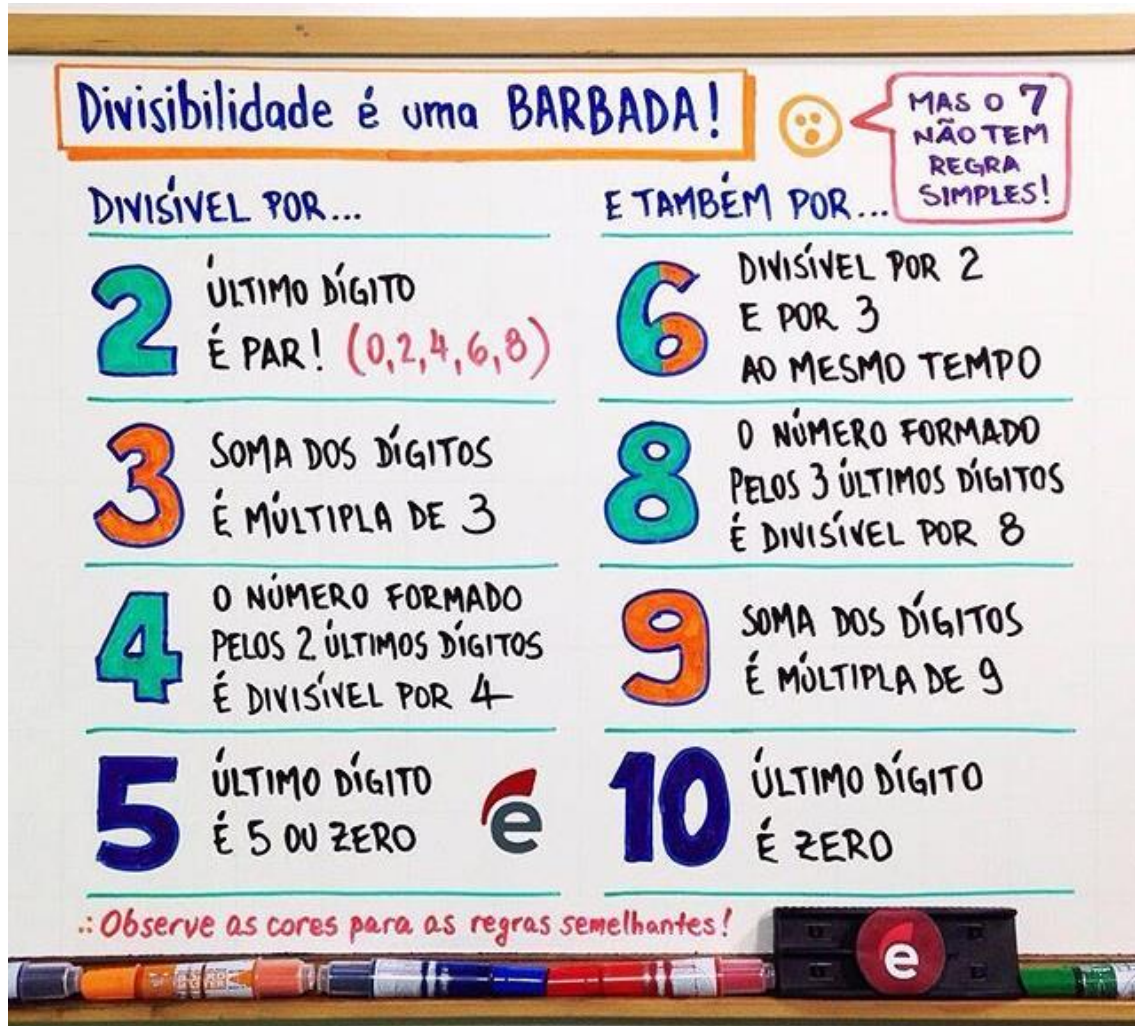 Divisibilidade é uma BARBADA!
MAS O 7
NÃO TEM
REGRA
SIMPLES!
DIVISÍVEL POR...
2
ÚLTIMO DÍGITO
É PAR! (0,2,4,6,8)
3
SOMA DOS DÍGITOS
É MÚLTIPLA DE 3
4
O NÚMERO FORMADO
PELOS 2 ÚLTIMOS DÍGITOS
É DIVISÍVEL POR 4
5
ÚLTIMO DÍGITO
É 5 OU ZERO
e
E TAMBÉM POR...
6
DIVISÍVEL POR 2
E POR 3
AO MESMO TEMPO
8
O NÚMERO FORMADO
PELOS 3 ÚLTIMOS DÍGITOS
É DIVISÍVEL POR 8
9
SOMA DOS DÍGITOS
É MÚLTIPLA DE 9
10
ÚLTIMO DÍGITO
É ZERO
∴ Observe as cores para as regras semelhantes!
e